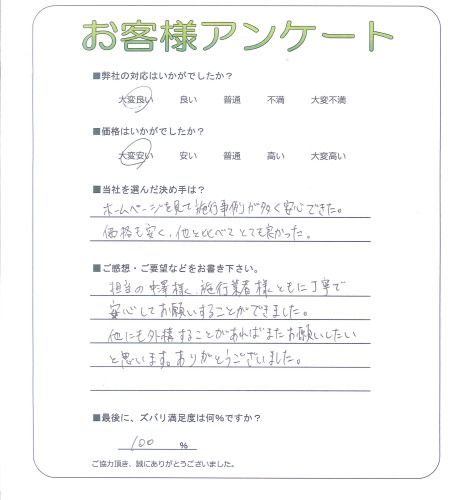 お客様アンケート
■弊社の対応はいかがでしたか？
大変良い 良い 普通 不満 大変不満
■価格はいかがでしたか？
大変安い 安い 普通 高い 大変高い
■当社を選んだ決め手は？
ホームページを見て施行事例が多く安心できた。
価格も安く、他と比べてとても良かった。
■ご感想・ご要望などをお書き下さい。
担当の中澤様、施行業者様ともに丁寧で
安心してお願いすることができました。
他にも外構することがあればまたお願いしたい
と思います。ありがとうございました。
■最後に、ズバリ満足度は何％ですか？
100 ％
ご協力頂き、誠にありがとうございました。